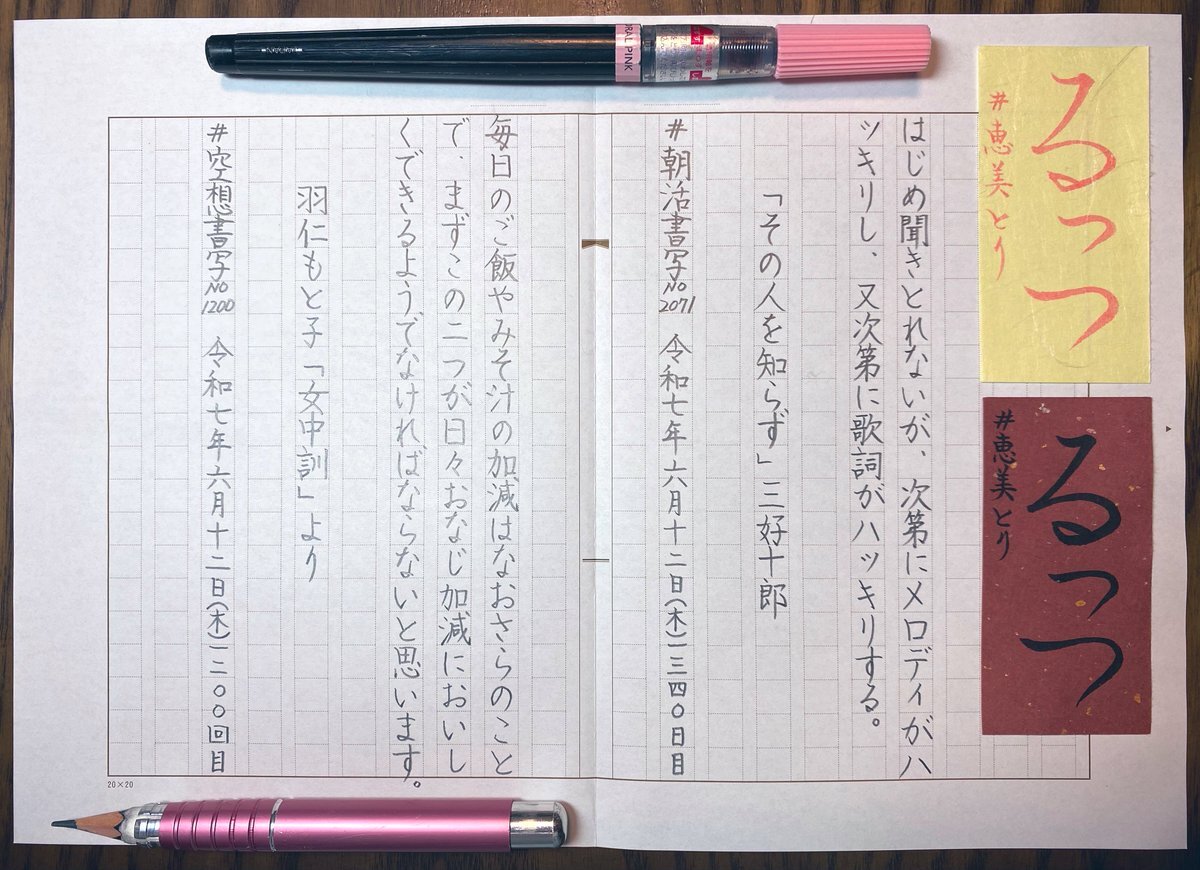 るっつ
#恵美とり
るっつ
#恵美とり
はじめ聞きとれないが、次第にメロディがハ
ッキリし、又次第に歌詞がハッキリする。
「その人を知らず」三好十郎
#朝活書写No2071 令和七年六月十二日(木)一三四〇日目
毎日のご飯やみそ汁の加減はなおさらのこと
で、まずこの二つが日々おなじ加減においし
くできるようでなければならないと思います。
羽仁もと子「女中訓」より
#空想書写No1200 令和七年六月十二日(木)一二〇〇回目
20×20
RAL PINK